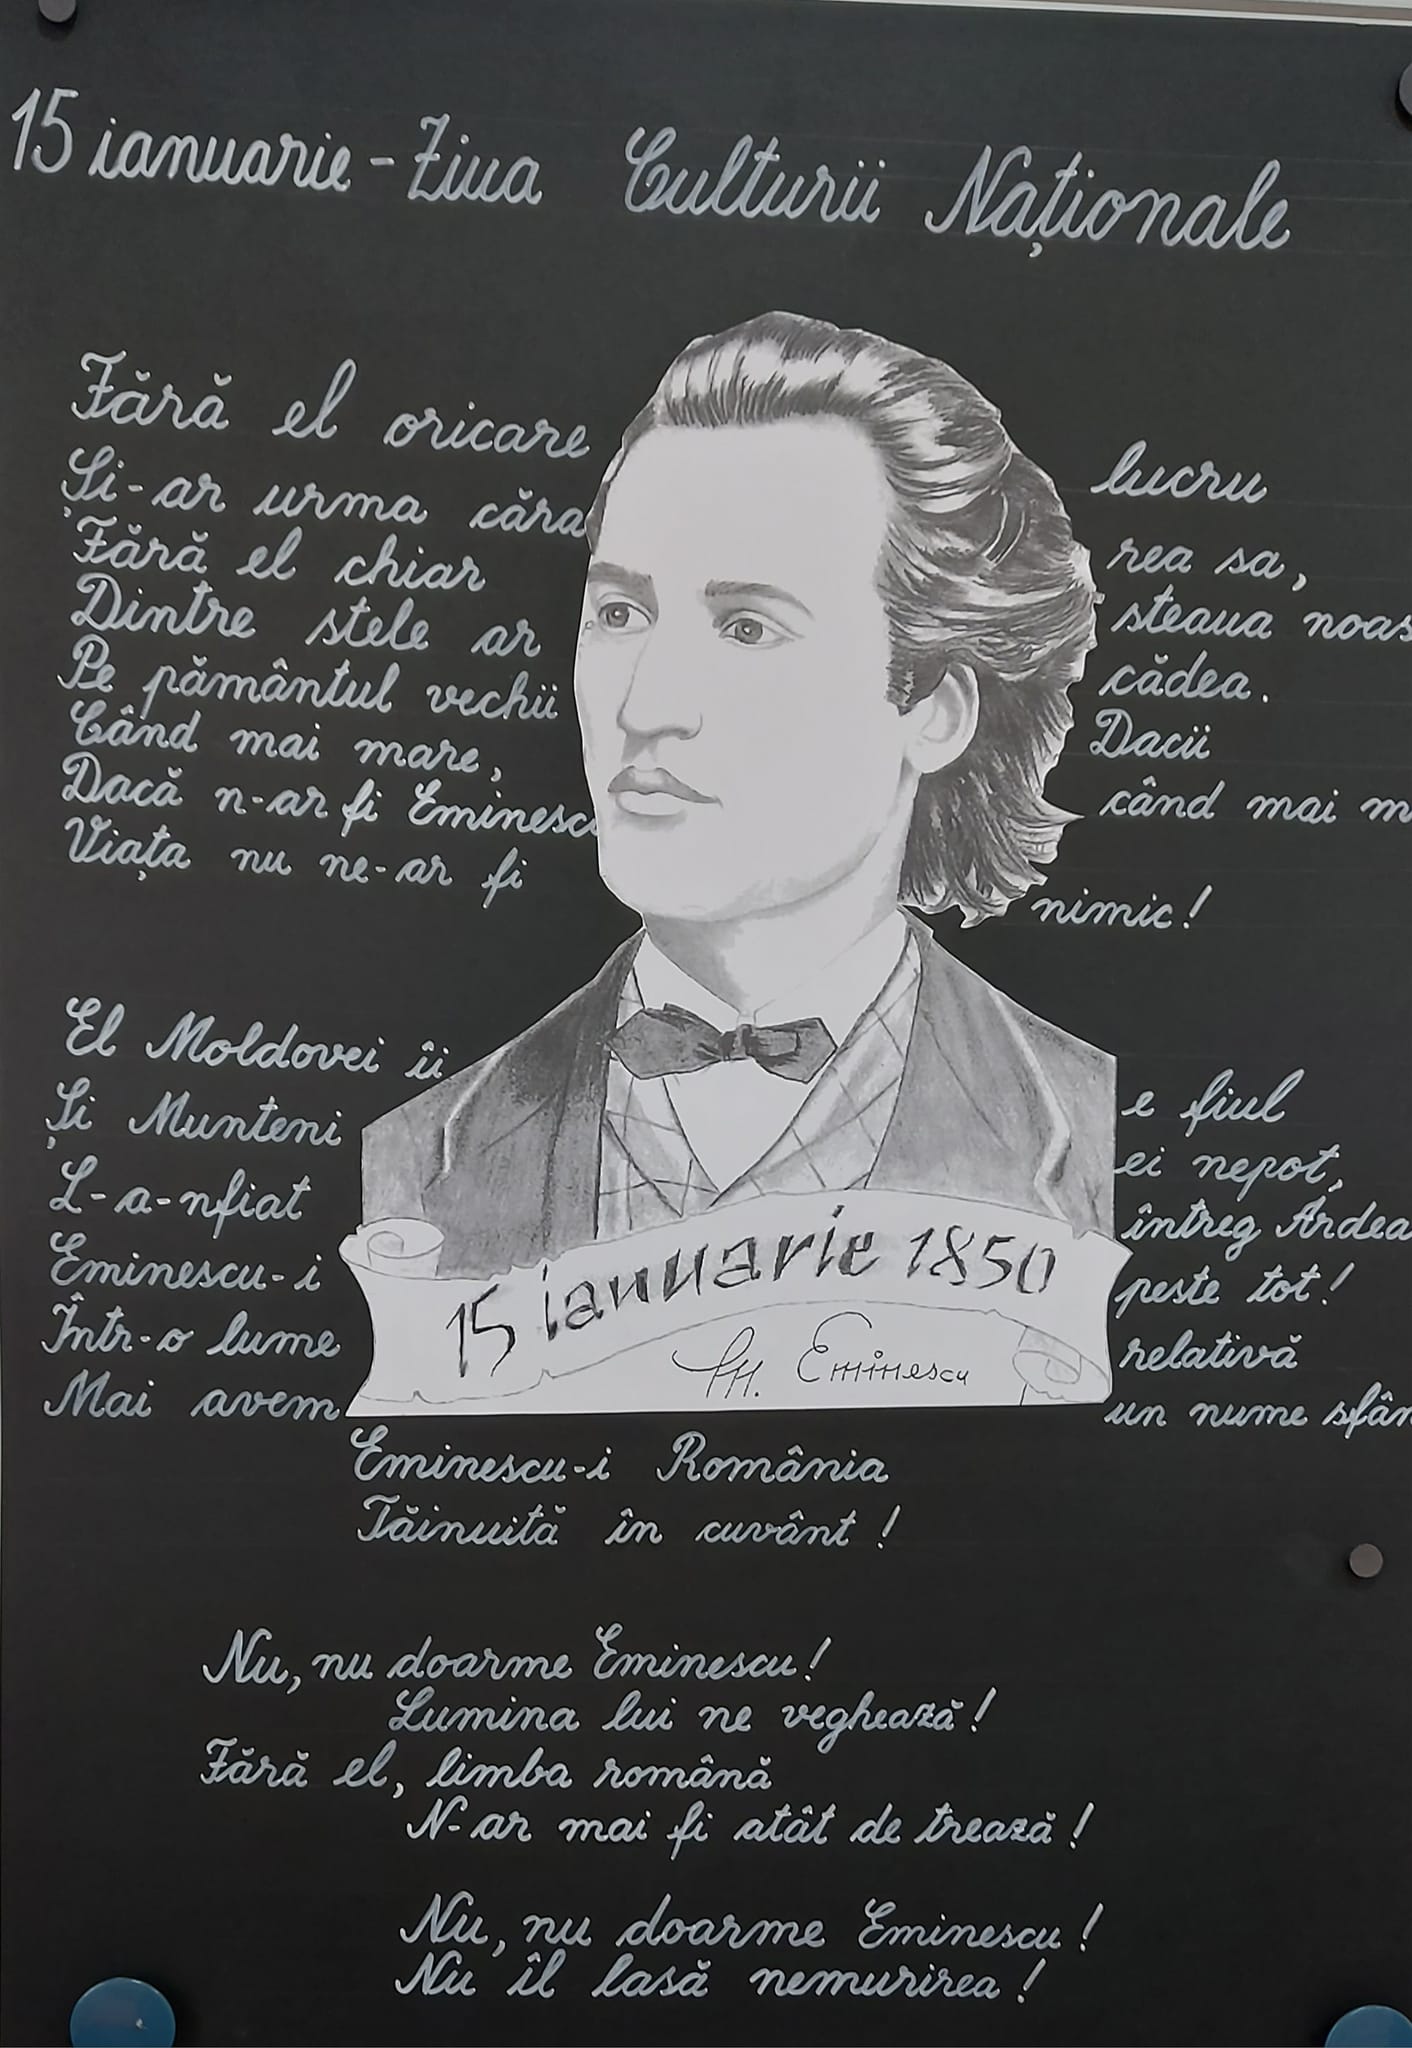 15 ianuarie - Ziua Culturii Naționale
Fără el oricare lucru
Și-ar urma cărarea sa,
Fără el chiar steaua noas
Dintre stele ar cădea.
Pe pământul vechii Dacii
Când mai mare, când mai m
Dacă n-ar fi Eminesc
Viața nu ne-ar fi nimic!
El Moldovei îi e fiul
Și Munteniei nepot,
L-a-nfiat întreg Ardea
Eminescu-i peste tot!
Într-o lume relativă
Mai avem un nume sfân
Eminescu-i România
Tăinuită în cuvânt!
15 ianuarie 1850
M. Eminescu
Nu, nu doarme Eminescu!
Lumina lui ne veghează!
Fără el, limba română
N-ar mai fi atât de trează!
Nu, nu doarme Eminescu!
Nu îl lasă nemurirea!